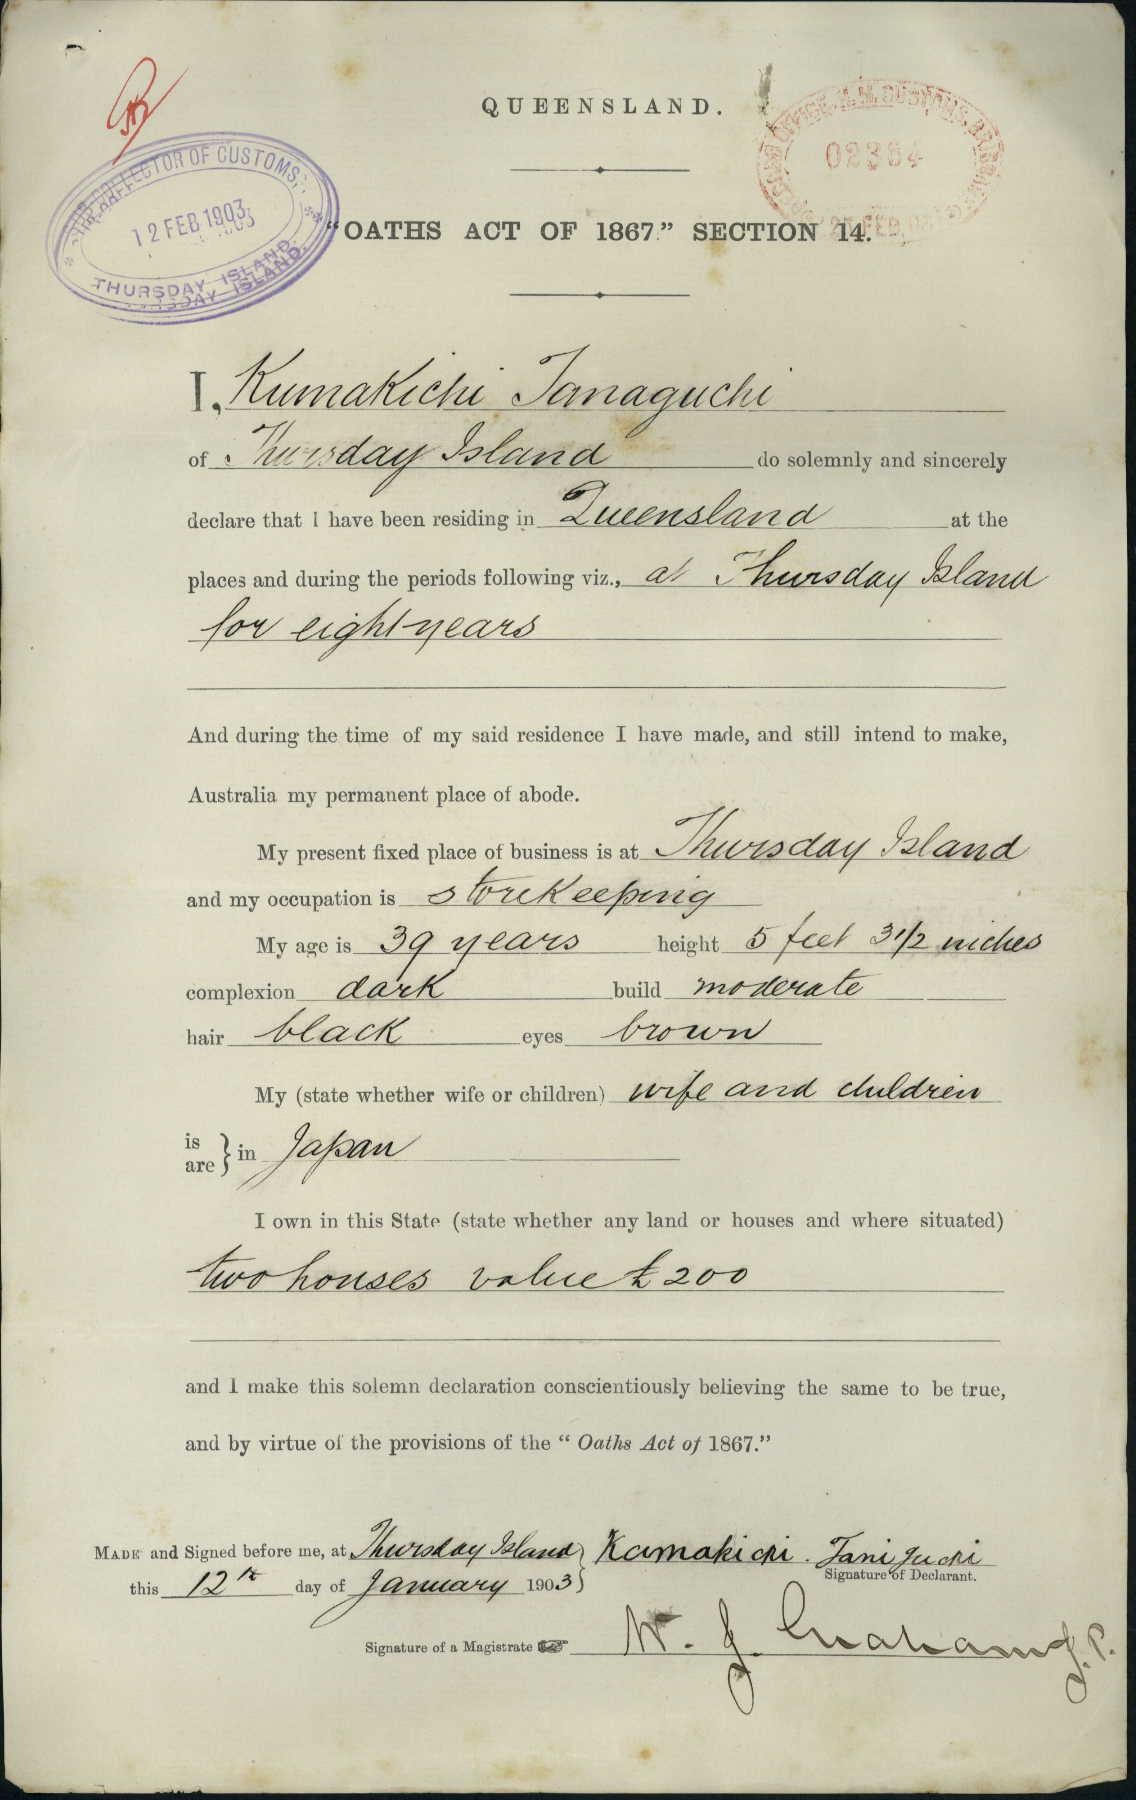 QUEENSLAND.
SUB-COLLECTOR OF CUSTOMS,
12 FEB 1903
THURSDAY ISLAND.
OFFICE H.M. CUSTOMS, BRISBANE
02364
FEB. 03
"OATHS ACT OF 1867." SECTION 14.
I, Kumakichi Tanaguchi
of Thursday Island do solemnly and sincerely
declare that I have been residing in Queensland at the
places and during the periods following viz., at Thursday Island
for eight years
And during the time of my said residence I have made, and still intend to make,
Australia my permanent place of abode.
My present fixed place of business is at Thursday Island
and my occupation is storekeeping
My age is 39 years height 5 feet 3 1/2 inches
complexion dark build moderate
hair black eyes brown
My (state whether wife or children) wife and children
is
are } in Japan
I own in this State (state whether any land or houses and where situated)
two houses value £200
and I make this solemn declaration conscientiously believing the same to be true,
and by virtue of the provisions of the "Oaths Act of 1867."
MADE and Signed before me, at Thursday Island } Kamakichi. Taniguchi
this 12th day of January 1903 } Signature of Declarant.
Signature of a Magistrate W. J. Graham J.P.